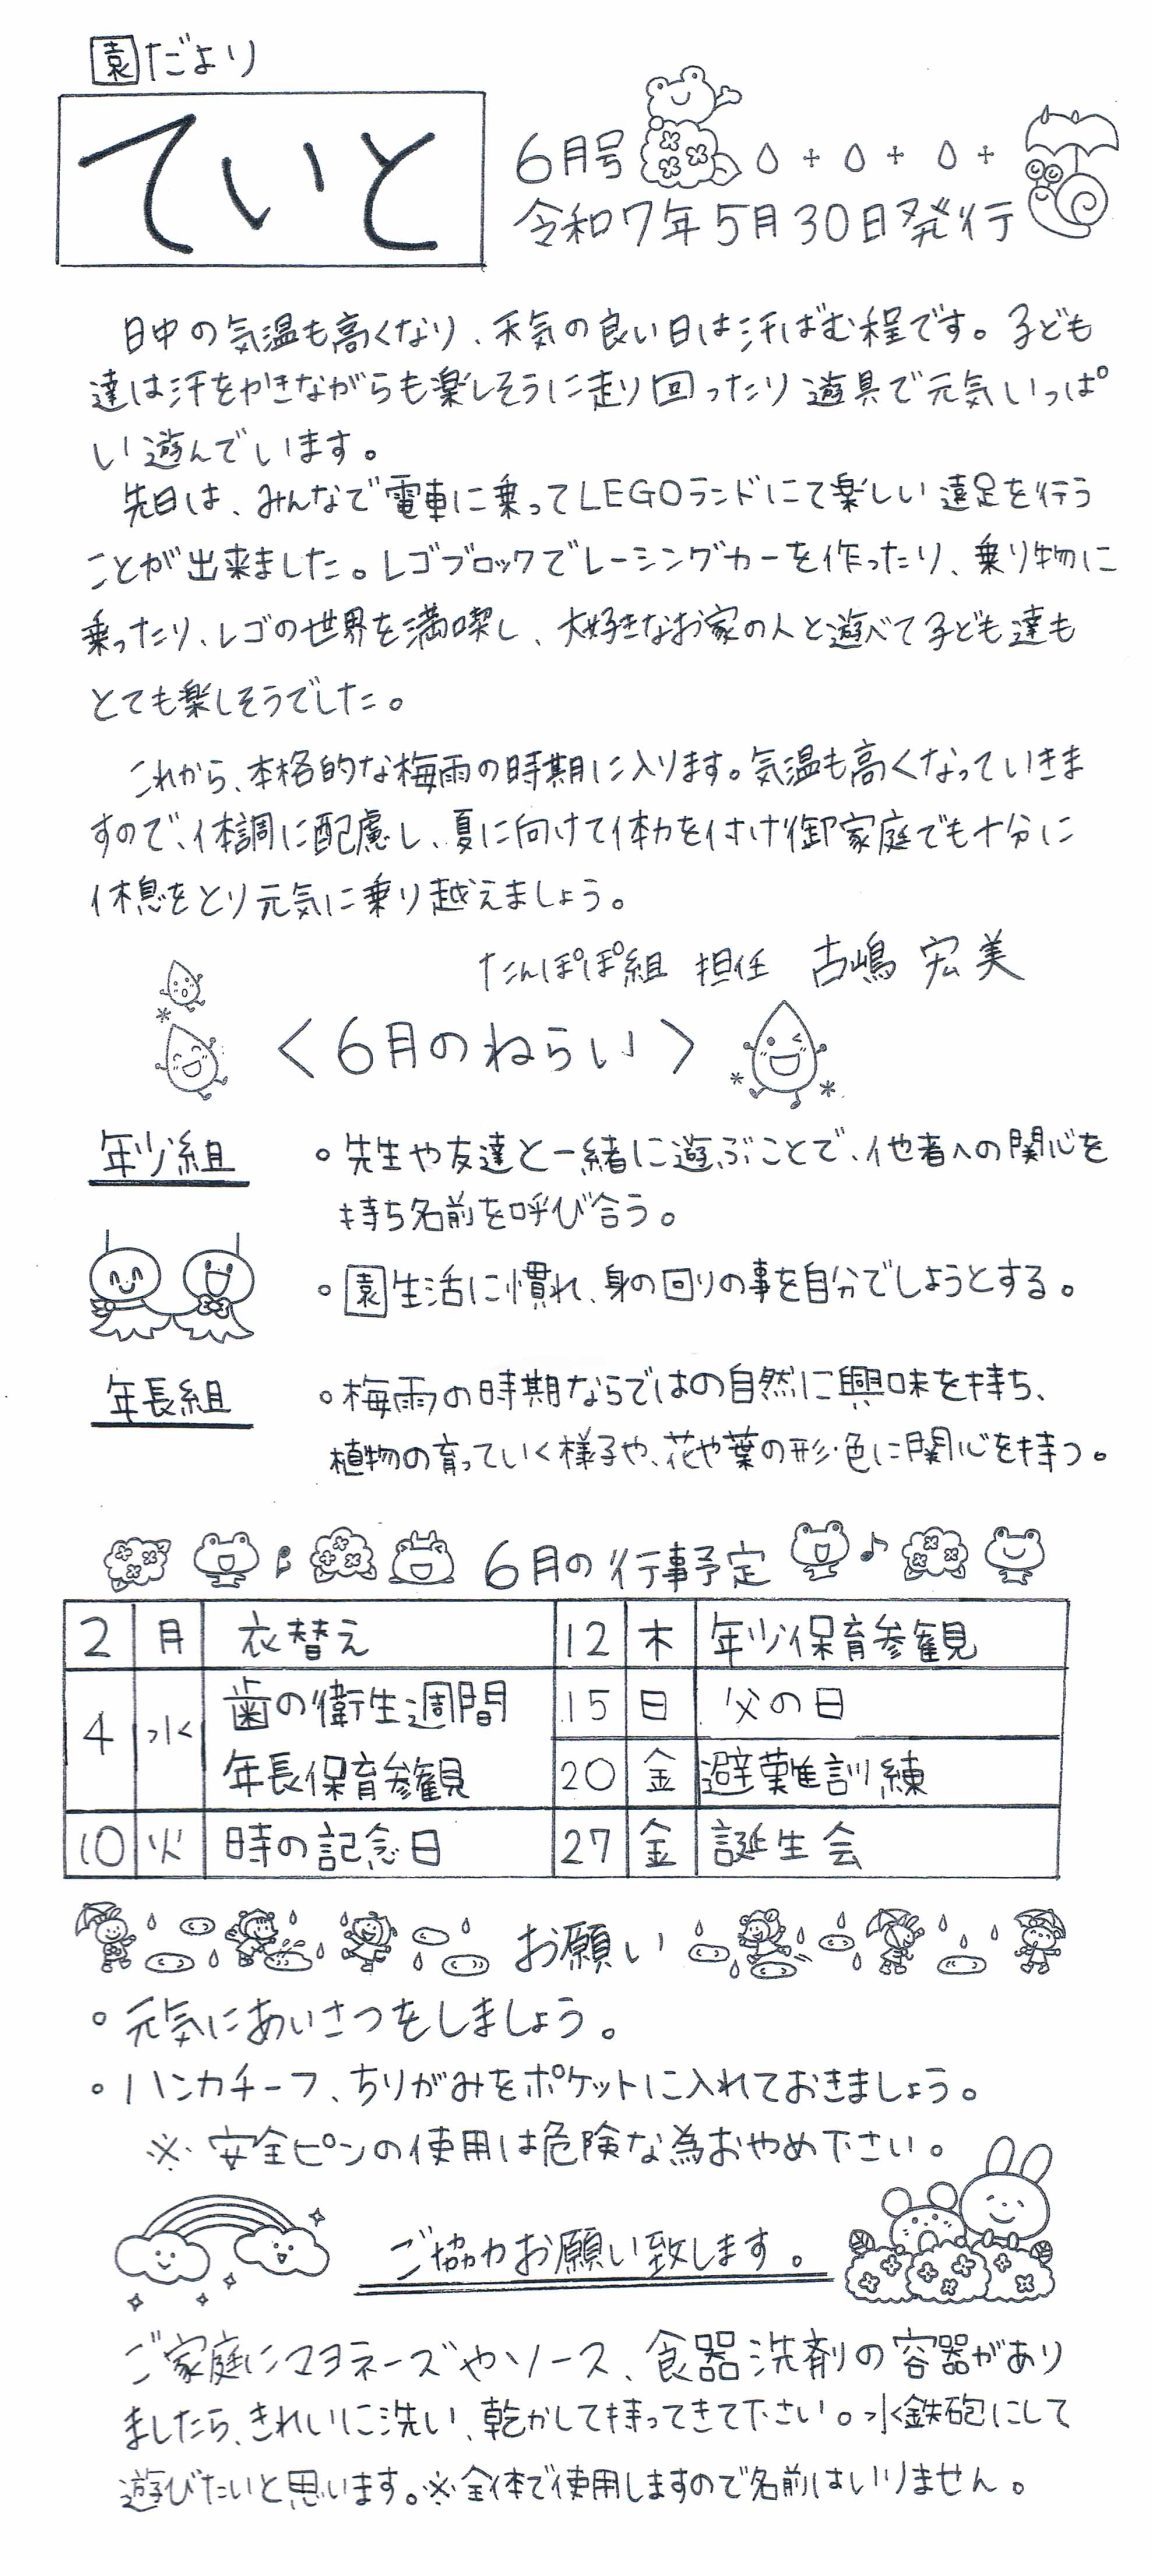 園だより
ていと
6月号
令和7年5月30日発行
日中の気温も高くなり、天気の良い日は汗ばむ程です。子ども
達は汗をかきながらも楽しそうに走り回ったり遊具で元気いっぱ
い遊んでいます。
先日は、みんなで電車に乗ってLEGOランドにて楽しい遠足を行う
ことが出来ました。レゴブロックでレーシングカーを作ったり、乗り物に
乗ったり、レゴの世界を満喫し、大好きなお家の人と遊べて子ども達も
とても楽しそうでした。
これから、本格的な梅雨の時期に入ります。気温も高くなっていきま
すので、体調に配慮し、夏に向けて体力を付け御家庭でも十分に
休息をとり元気に乗り越えましょう。
たんぽぽ組 担任 古嶋 宏美
〈6月のねらい〉
年少組
。先生や友達と一緒に遊ぶことで、他者への関心を
持ち名前を呼び合う。
。園生活に慣れ、身の回りの事を自分でしようとする。
年長組
。梅雨の時期ならではの自然に興味を持ち、
植物の育っていく様子や、花や葉の形・色に関心を持つ。
6月の行事予定
2 月 衣替え
4 水 歯の衛生週間
年長保育参観
10 火 時の記念日
12 木 年少保育参観
15 日 父の日
20 金 避難訓練
27 金 誕生会
お願い
。元気にあいさつをしましょう。
。ハンカチーフ、ちりがみをポケットに入れておきましょう。
※安全ピンの使用は危険な為おやめ下さい。
ご協力お願い致します。
ご家庭にマヨネーズやソース、食器洗剤の容器があり
ましたら、きれいに洗い、乾かして持ってきて下さい。水鉄砲にして
遊びたいと思います。※全体で使用しますので名前はいりません。